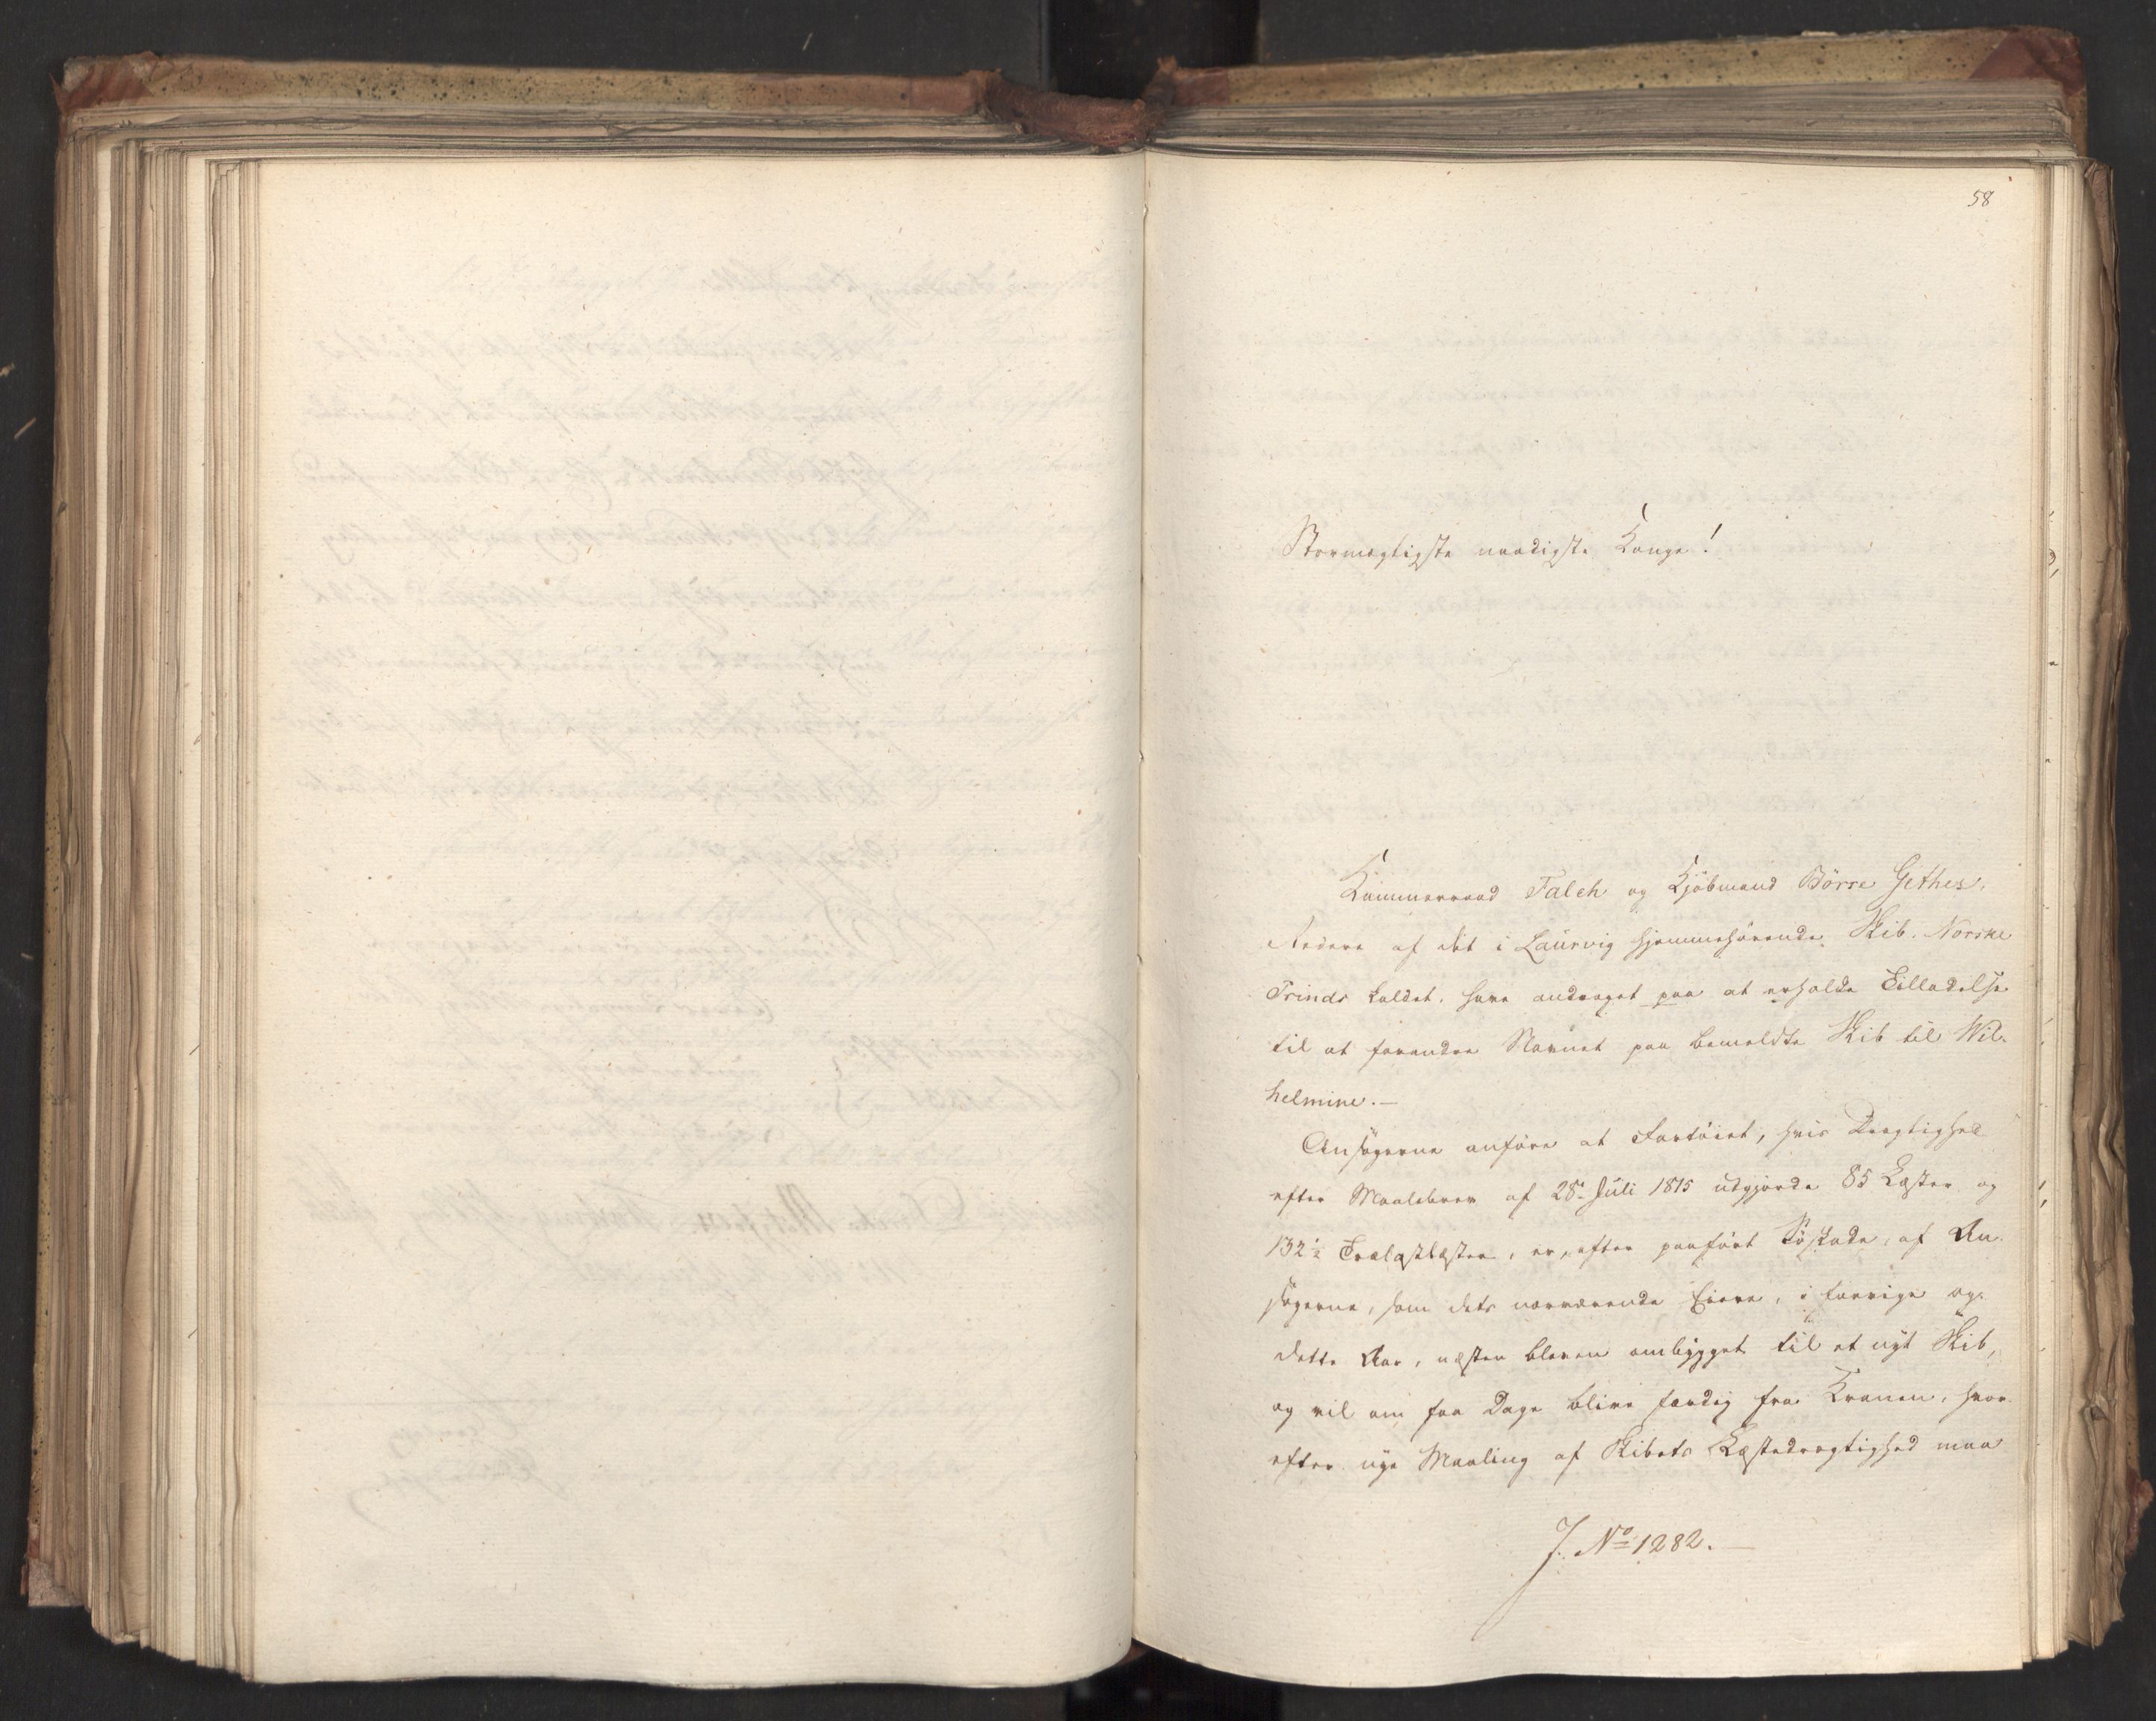 58
Stormægtigste naadigste Konge!
Kammerraad Falch og Kjøbmand Börre Gethes,
Redere af det i Laurvig hjemmehørende Skib Norske
Prinds kaldet, have andraget paa at erholde Tilladelse
til at forandre Navnet paa bemeldte Skib til Wil-
helmine.—
Ansøgerne anføre at Fartöiet, hvis Drægtighed
efter Maalebrev af 28de Juli 1815 udgjorde 85 Læster og
132½ Trælastlæster, er, efter paaført Söskade, af An-
søgerne, som dets nærværende Eiere, i forrige og
dette Aar, næsten bleven ombygget til et nyt Skib,
og vil om faa Dage blive færdig fra Kranen, hvor-
efter nye Maaling af Skibets Læstedrægtighed maa
J. No 1282.—